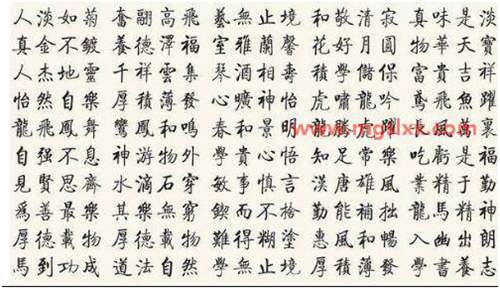 人淡如菊 奮翩高飛 藝無止境 和敬清寂 真味是淡
真金不鍍 養德澤福 室雅蘭馨 花好月圓 物華天寶
人杰地靈 千祥雲集 琴酒相壽 積學儲保 富貴吉祥
怡然自樂 厚積薄發 心曠神怡 虎嘯龍吟 鳶飛魚躍
龍飛鳳舞 鸞鳳和鳴 春和景明 龍騰虎躍
自强不息 神游物外 學貴心悟 知足常樂 吃虧是福
見賢思齊 水滴石穿 敏事慎言 漢唐雄風 業精于勤
為善最樂 其樂無窮 鍥而不捨 勤能補拙 龍馬精神
厚德載物 厚德載物 難得糊塗 惠風和暢 入幽出朗
馬到功成 道法自然 學無止境 厚積薄發 學書養志